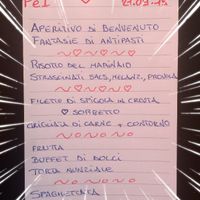 APERITIVO DI BENVENUTO
FANTASIE DI ANTIPASTI
RISOTTO DEL MARINAIO
STRASCINATI SALS, MELANZ, PROVOLA
FILETTO DI SPIGOLA IN CROSTA
SORBETTO
GRIGLIATA DI CARNE + CONTORNO
FRUTTA
BUFFET DI DOLCI
TORTA NUNZIALE
SPAGHETTATA